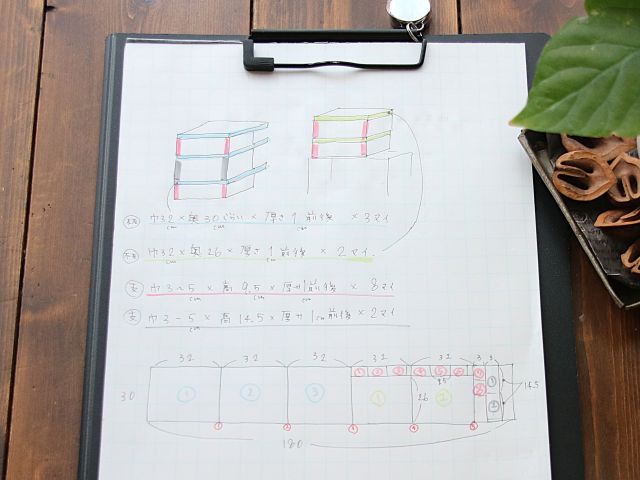 巾32×奥30ぐらい×厚さ1前後×3マイ
cm cm cm
巾32×奥26×厚さ1前後×2マイ
cm cm
巾3~5×高9.5×厚み1前後×8マイ
cm cm cm
巾3~5×高14.5×厚み1cm前後×2マイ
cm
32 32 32 32 32 3 3
① ② ③ ④ ⑤ ⑥ ⑦
9.5
30 ① ② ③ ① ② ⑧ ① 14.5
26 ②
180